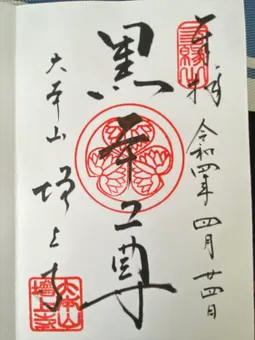 奉拝
三縁山
令和四年四月廿四日
黒本尊
大本山
増上寺
大本山増上寺